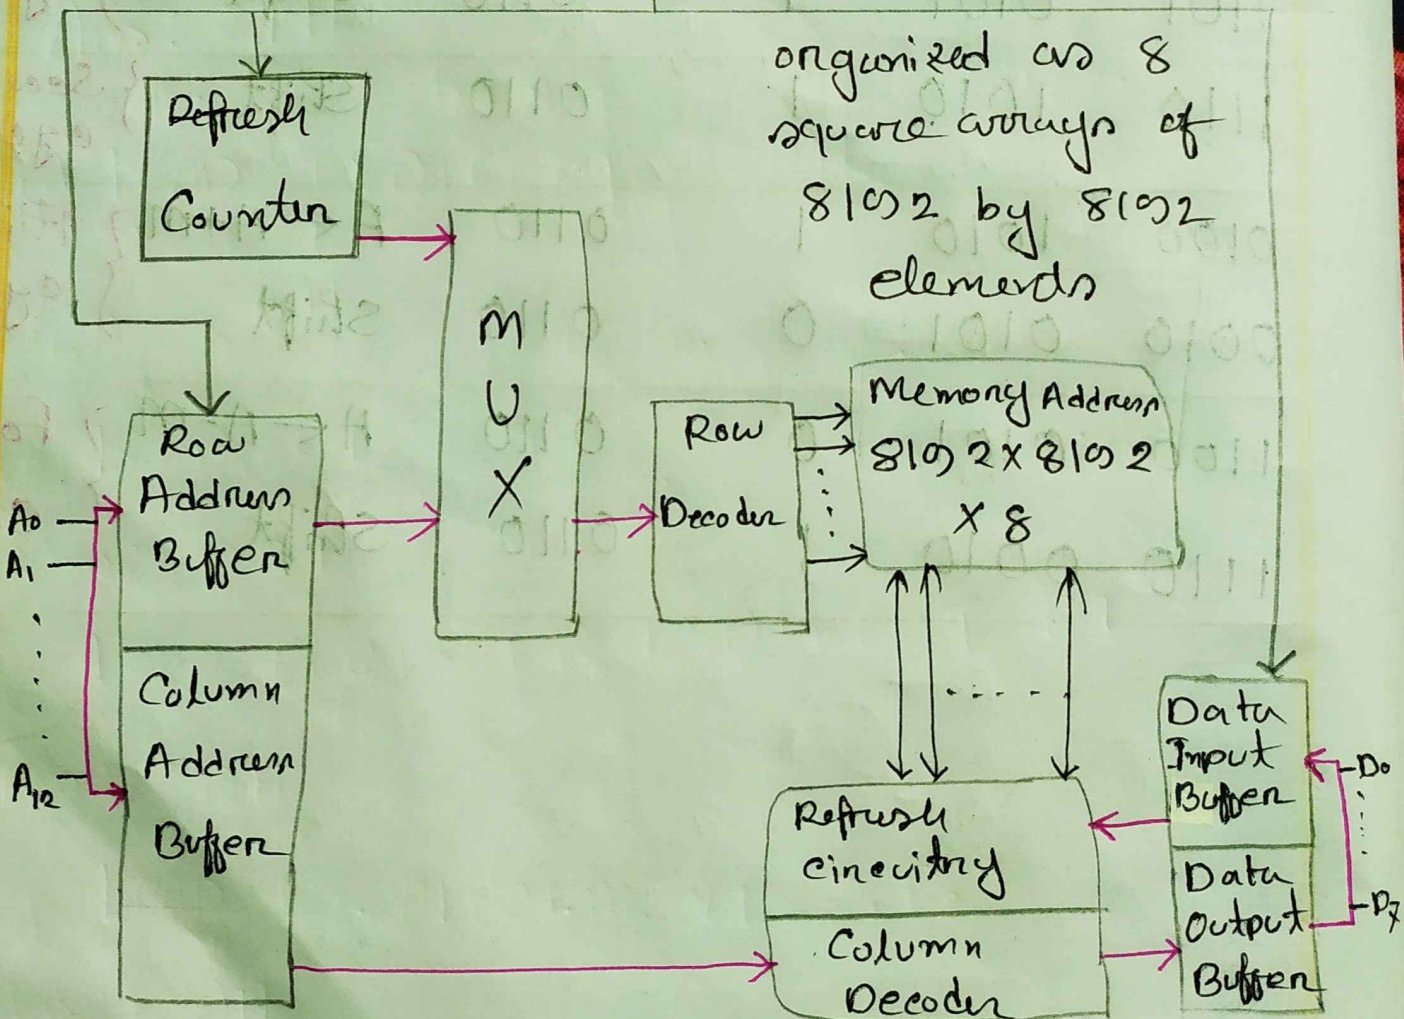 organized as 8
square arrays of
8192 by 8192
elements
Refresh
Counter
M
U
X
Row
Address
Buffer
Column
Address
Buffer
A0
A1
A12
Row
Decoder
Memory Address
8192 x 8192
x 8
Refresh
Circuitry
Column
Decoder
Data
Input
Buffer
Data
Output
Buffer
D0
D7